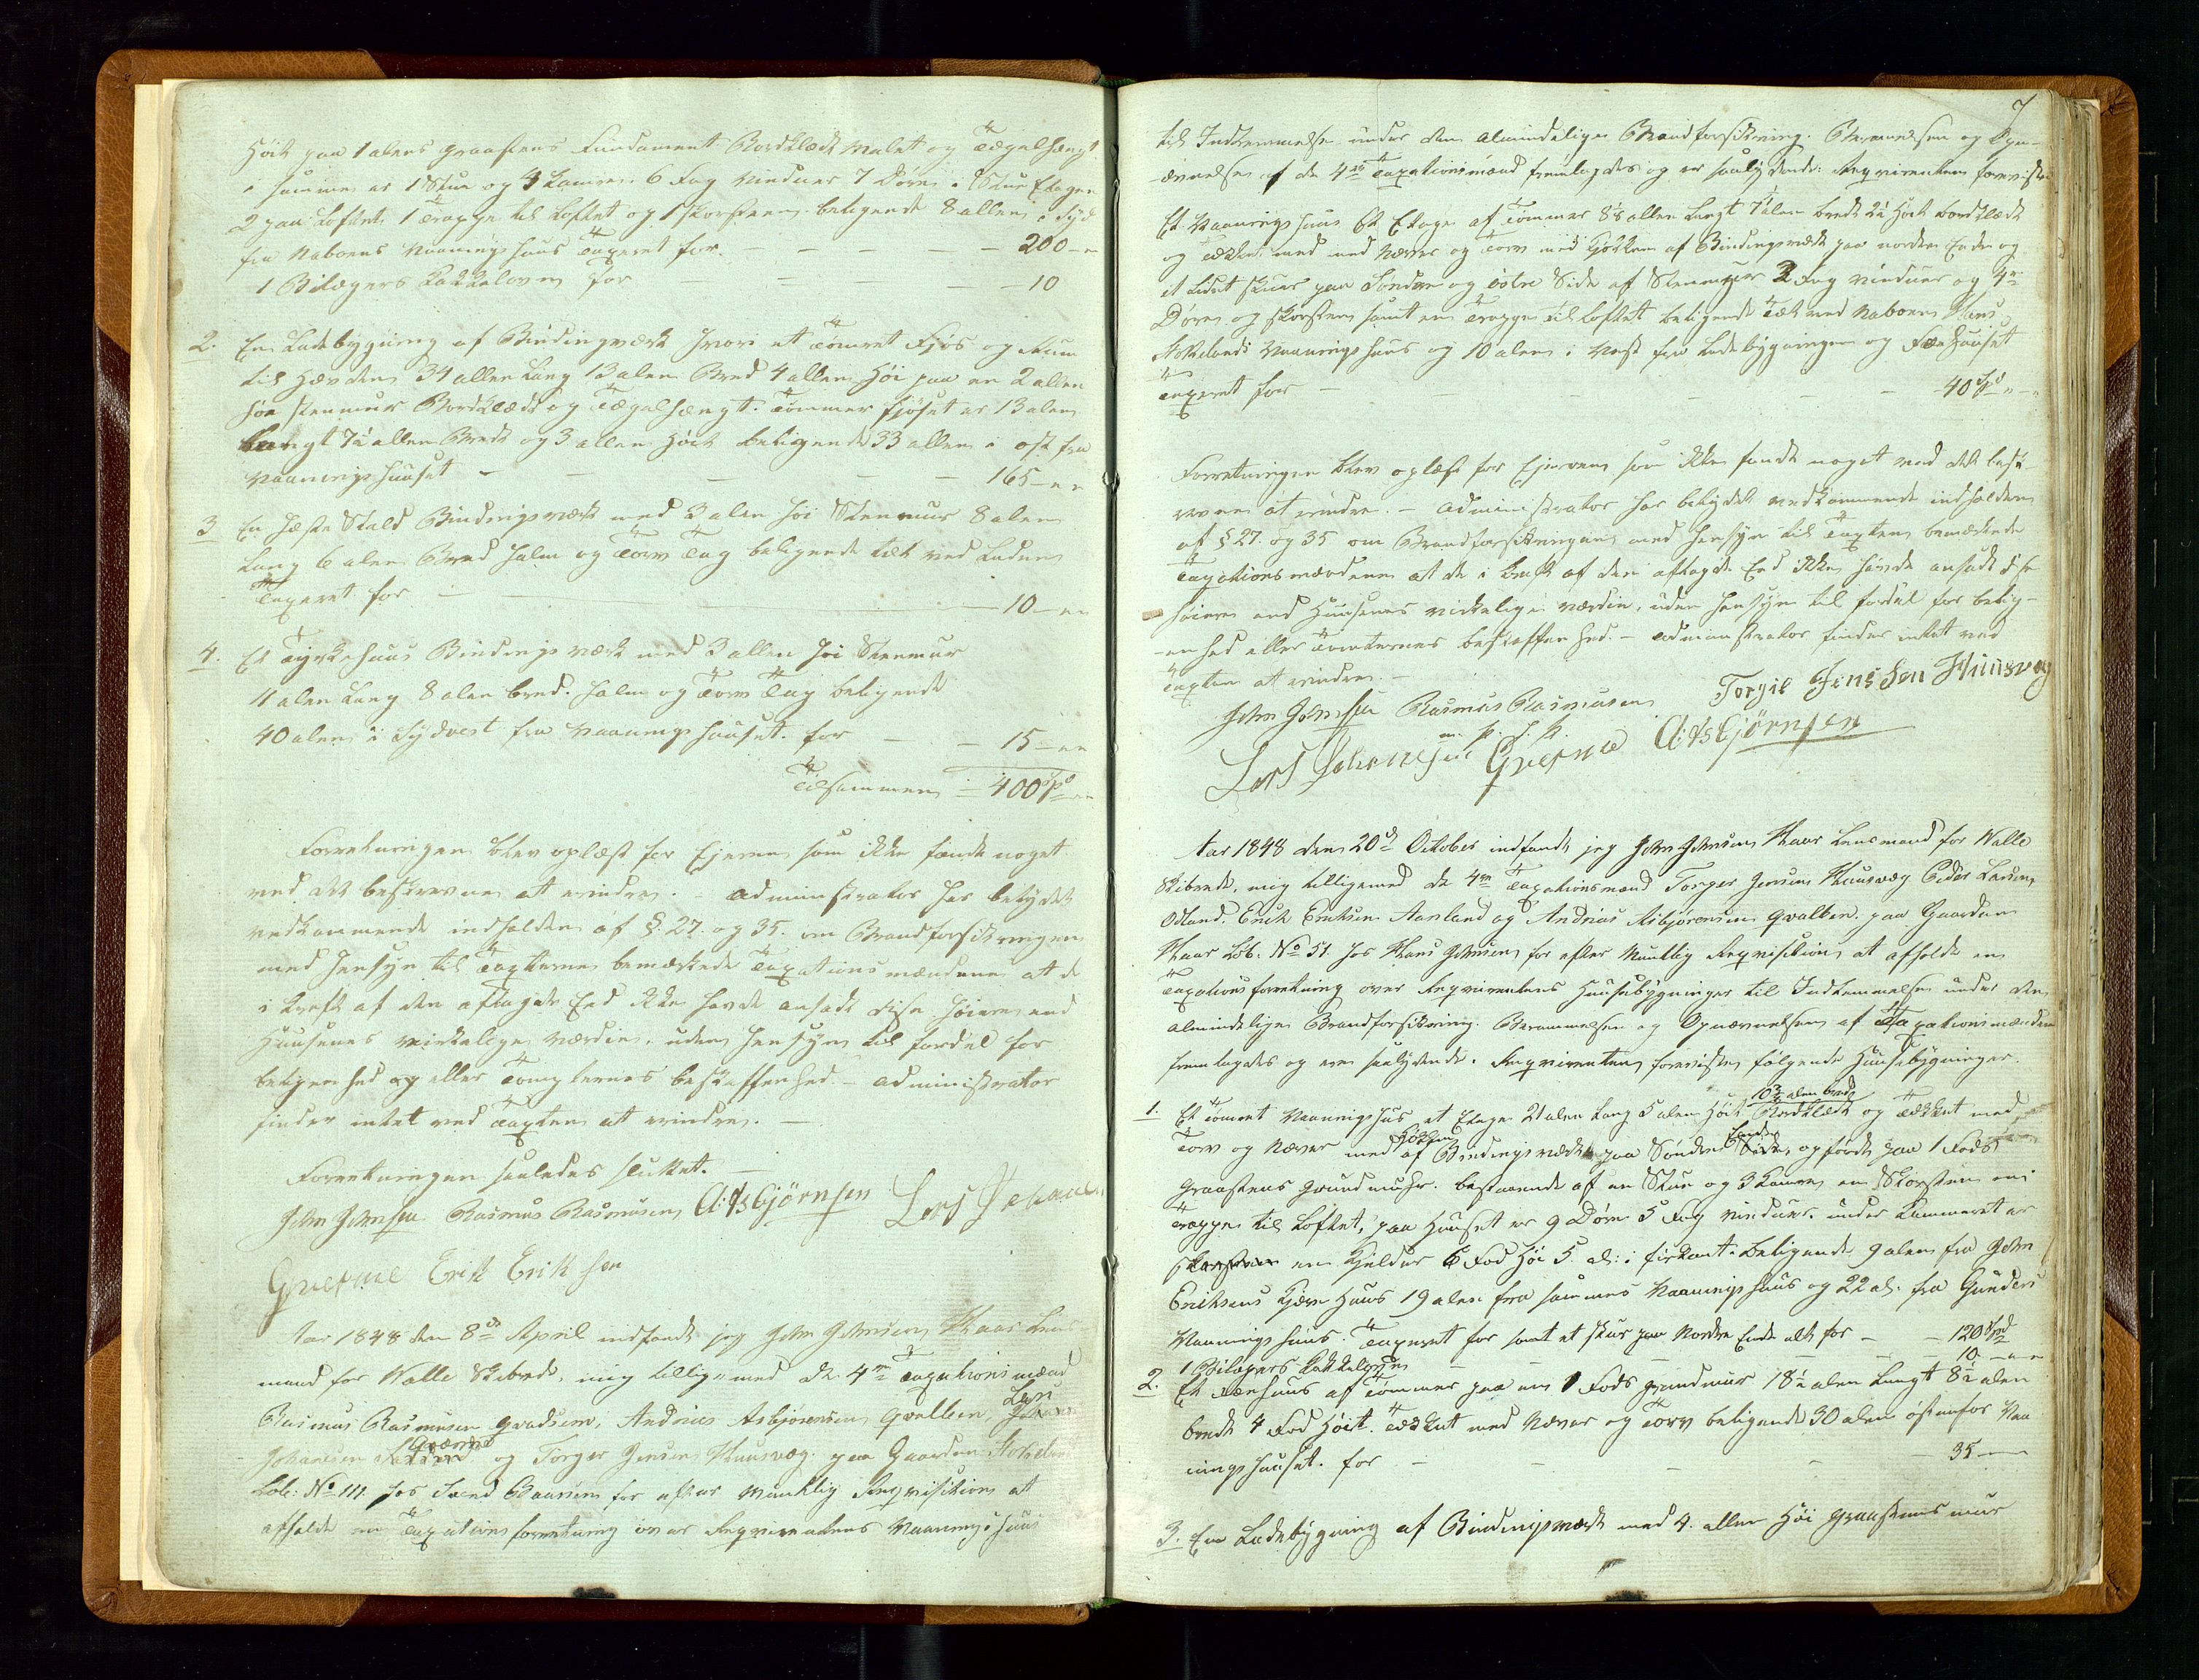 Høit paa 1 alens graasteens Fundament Bordklædt Malet og Tægelhængt
i samme er 1 Stue og 4 Kamre 6 Fag Vinduer 7 Døre i Stue Etagen
2 paa Loftet. 1 Trappe til Loftet og 1 skorsteen beligende 8 allen i Syd
fra Naboens Vaaningshuus Taxeret for. — — — 200 - "
1 Bilægers Kakkeloven for — — — 10
2. En Ladebygning af Bindingværk hvori et Tømret Fjøs og Rum
til Høvden 34 allen Lang 13 alen Bred 4 allen Høi paa en 2 allen
høi stenmuur Bordklædt og Tægelhængt. Tømmer fjøset er 13 alen
Langt 7½ allen Bredt og 3 allen Høit beligende 33 allen i ost fra
Vaaningshuuset — — — 165 - " "
3 En Hæste Stald Bindingsværk med 3 alen høi Steenmuur 8 alen
Lang 6 alen Bred halm og Torv Tag beligende tæt ved Laden
Taxeret for — — 10 - " "
4. Et Tyrkehuus Bindings værk med 3 allen Høi Steenmur
11 alen Lang 8 alen bred. halm og Torv Tag beligende
40 alen i Sydvest fra Vaaningshuuset. for — — 15 - " "
Tilsammen = 400 Spd "
Forretningen blev oplæst for Ejeren som ikke fandt noget
ved det beskrevne at erindre. — Administrator har betydet
vedkommende indholden af § 27. og 35. om Brandforsikringen
med hensyn til Taxterne bemærkede Taxationsmændene at de
i kraft af den aflagde Eed ikke havde ansadt disse høiere end
Huusenes virkelige værdie, uden hensyn til fordel for
beligenhed og eller Tomternes beskaffenhed — administrator
finder intet ved Taxten at erindre. —
Forretningen saaledes sluttet. —
John Johnsen Rasmus Rasmusen A: Asbjörnsen Lars Johane
Gvestne Erik Erik sen
Aar 1848 den 8de April indfandt jeg John Johnsen Haar Lens
mand for Nalle Skibrede, mig tilligemed de 4re Taxationsmænd
Rasmus Rasmusen Gvadsem, Andrias Asbjørensen Qvalben, Lars
Johannesen og Torger Jensen Huusvæg. paa Gaarden
Løb: No 111. hos Baarsen for efter Mundtlig Reqvisition at
afholde en Taxations forretning over Reqvirentens Vaaningshuus
7
til Indlemmelse under den almindelige Brandforsikring. Berammelsen og Opn-
ævnelsen af de 4re Taxationsmænd fremlagdes og er saalydende: Reqvirenten foreviste
Et Vaanings huus Et Etage af Tømmer 8½ allen Langt 7½ alen bredt 2½ Høit bordklædt
og Tækket med med Næver og Torv med Kjøkken af Bindingsværk paa nordre Ende og
et Lidet skuur paa Søndre og østre Side af Steenmuur 2 Fag vinduer og 4re
Døre og skorsteen samt en Trappe til Loftet beligende Tæt ved Naboens Huus
Vaanings huus og 10 alen i Vest fra Ladebygningen og Fæehuuset
Taxeret for — — — 40 Spd " "
Forretningen blev oplæst for Ejeren som ikke fandt noget ved det besk-
revne at erindre. — Administrator har betydet vedkommende indholden
af § 27. og 35 om Brandforsikringen med hensyn til Taxten bemærkede
Taxationsmændene at de i kraft af den aflagde Eed ikke havde ansadt disse
høiere end Huusenes virkelige værdie, uden hensyn til fordel for belig-
enhed eller Tomternes beskaffenhed. — administrator finder intet ved
Taxten at erindre. —
John Johnsen Rasmus Rasmusen Torgil Jens Sen Huusvæg
m. p. f. P.
Lars Johannesen Gvestne A: Asbjörnsen
Aar 1848 den 20de October indfandt jeg John Johnsen Haar Lensmand for Nalle
Skibrede, mig tilligemed de 4re Taxationsmænd Torger Jensen Huusvæg Peder Larsen
Odland. Erich Eriksen Aarsland og Andrias Asbjørensen Qvalben. paa Gaarden
Haar Løb. No 51. hos Hans Johnsen for efter Mundtlig Reqvisition at afholde en
Taxations forretning over Reqvirentens Huusebygninger til Indlemmelse under den
almindelige Brandforsikring. Berammelsen og Opnævnelsen af Taxationsmændene
fremlagdes og ere saalydende. Reqvirenten foreviste følgende Huusebygninger.
10¾ alen bredt
1. Et Tømret Vaaningshus et Etage 21 alen Lang 5 alen Høit Bordklædt og Tækket med
Torv og Næver med Kjøkken af Bindingsværk paa Søndre Side, opførdt paa 1 Fods
graasteens grundmuhr. bestaaende af en Stue og 3 Kamre en Skorsteen en
Trappe til Loftet, paa Huuset er 9 Døre 5 Fag vinduer. under Kammeret er
en Kjelder 6 Fod Høi 5. al: i firkant. Beligende 9 alen fra John
Eriksens Kjøre Huus 19 alen fra sammes Vaaningshuus og 22 al. fra Gunders
Vaanings huus. Taxeret for samt et skur paa Nordre Ende alt for — — 120 Spd
1 Bilægers Kakkelovn — — — 10 - " "
2. Et Fæehuus af Tømmer paa en 1 Fods grundmur 18½ alen Langt 8½ alen
bredt 4 Fod Høit. Tækket med Næver og Torv beligende 30 alen østenfor Vaa
ningshuuset. for — — — 35 - "
3. En Ladebygning af Bindingsværk med 4. allen Høi graasteens mur